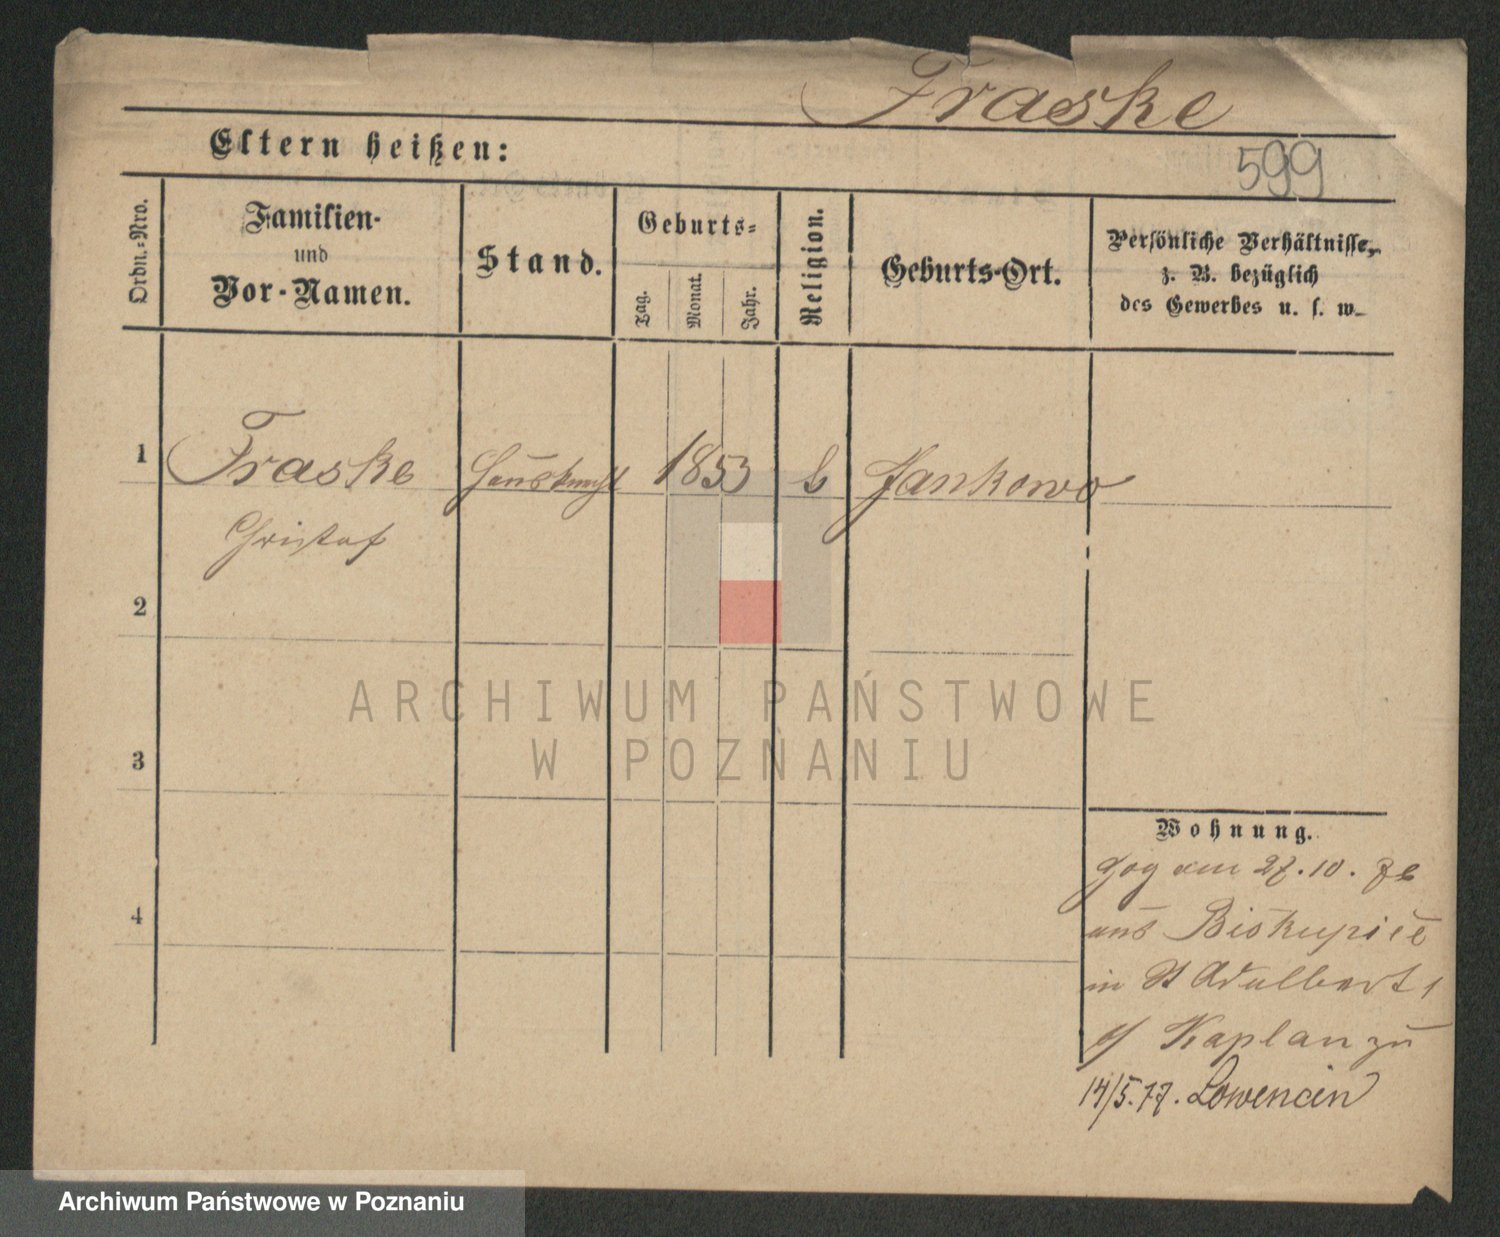 Fraske
Eltern heißen:
599
Ordn.-Nro.
Familien-
und
Vor-Namen.
Stand.
Geburts-
Tag.
Monat.
Jahr.
Religion.
Geburts-Ort.
Persönliche Verhältnisse,
z. B. bezüglich
des Gewerbes u. s. w.
1
Fraske Hausknecht 1853 Jankowo
Christof
2
3
4
ARCHIWUM PAŃSTWOWE
W POZNANIU
Wohnung.
zog am 27.10.76
aus Biskupice
in St Adalbert 1
Kaplan zu
14/5.77. Lowencin
Archiwum Państwowe w Poznaniu